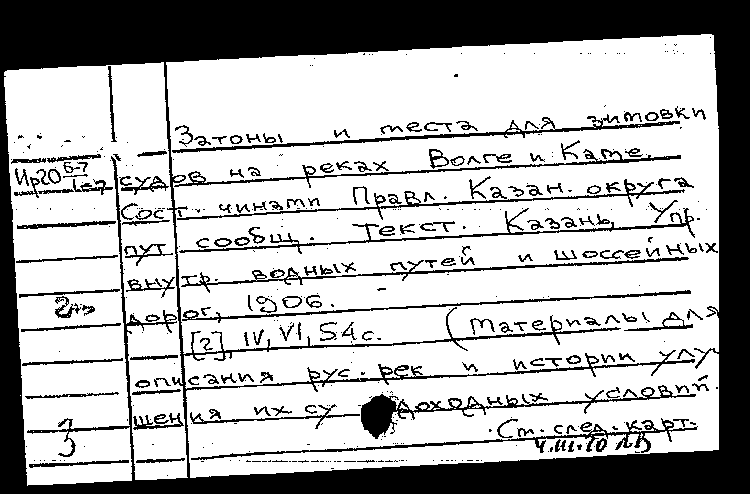 Затоны и места для зимовки
Ир20 6-7
1-7
судов на реках Волге и Каме.
Сост. чинами Правл. Казан. округа
пут. сообщ. Текст. Казань, Упр.
внутр. водных путей и шоссейных
дорог, 1906.
[2], IV, VI, 54 с. (Материалы для
описания рус. рек и истории улу
шения их су доходных условий.
3
Ст. след. карт.